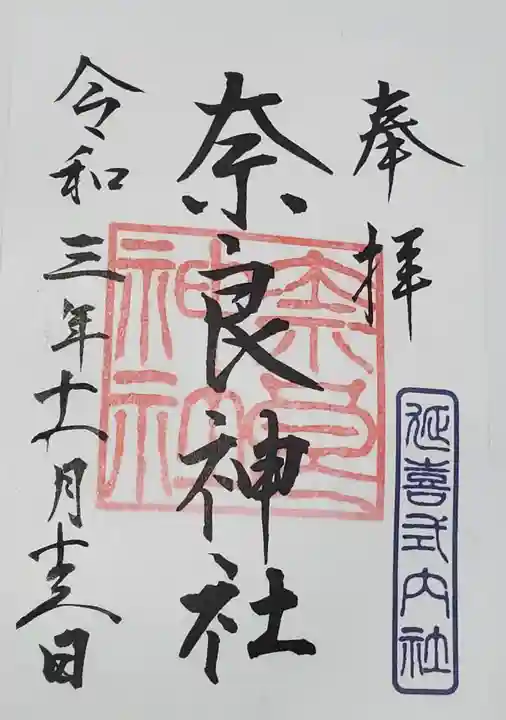 奉拝
延喜式内社
奈良神社
奈良神社
令和三年 月 日